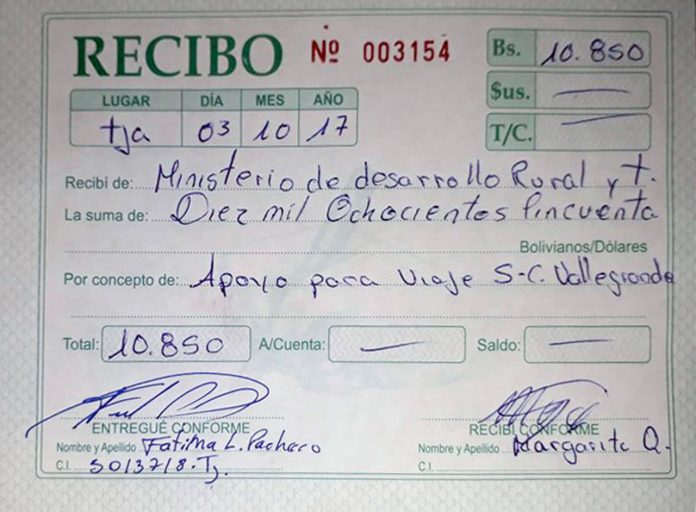 RECIBO Nº 003154 Bs. 10.850
$us. —
T/C. —
LUGAR DÍA MES AÑO
tja 03 10 17
Recibi de: Ministerio de desarrollo Rural y t.
La suma de: Diez mil Ochocientos Cincuenta
Bolivianos/Dólares
Por concepto de: Apoyo para Viaje S-C. Vallegrande
Total: 10.850 A/Cuenta: — Saldo: —
ENTREGUÉ CONFORME RECIBÍ CONFORME
Nombre y Apellido Fatima L. Pacheco Nombre y Apellido Margarita Q.
C.I. 5013718-Tj. C.I.